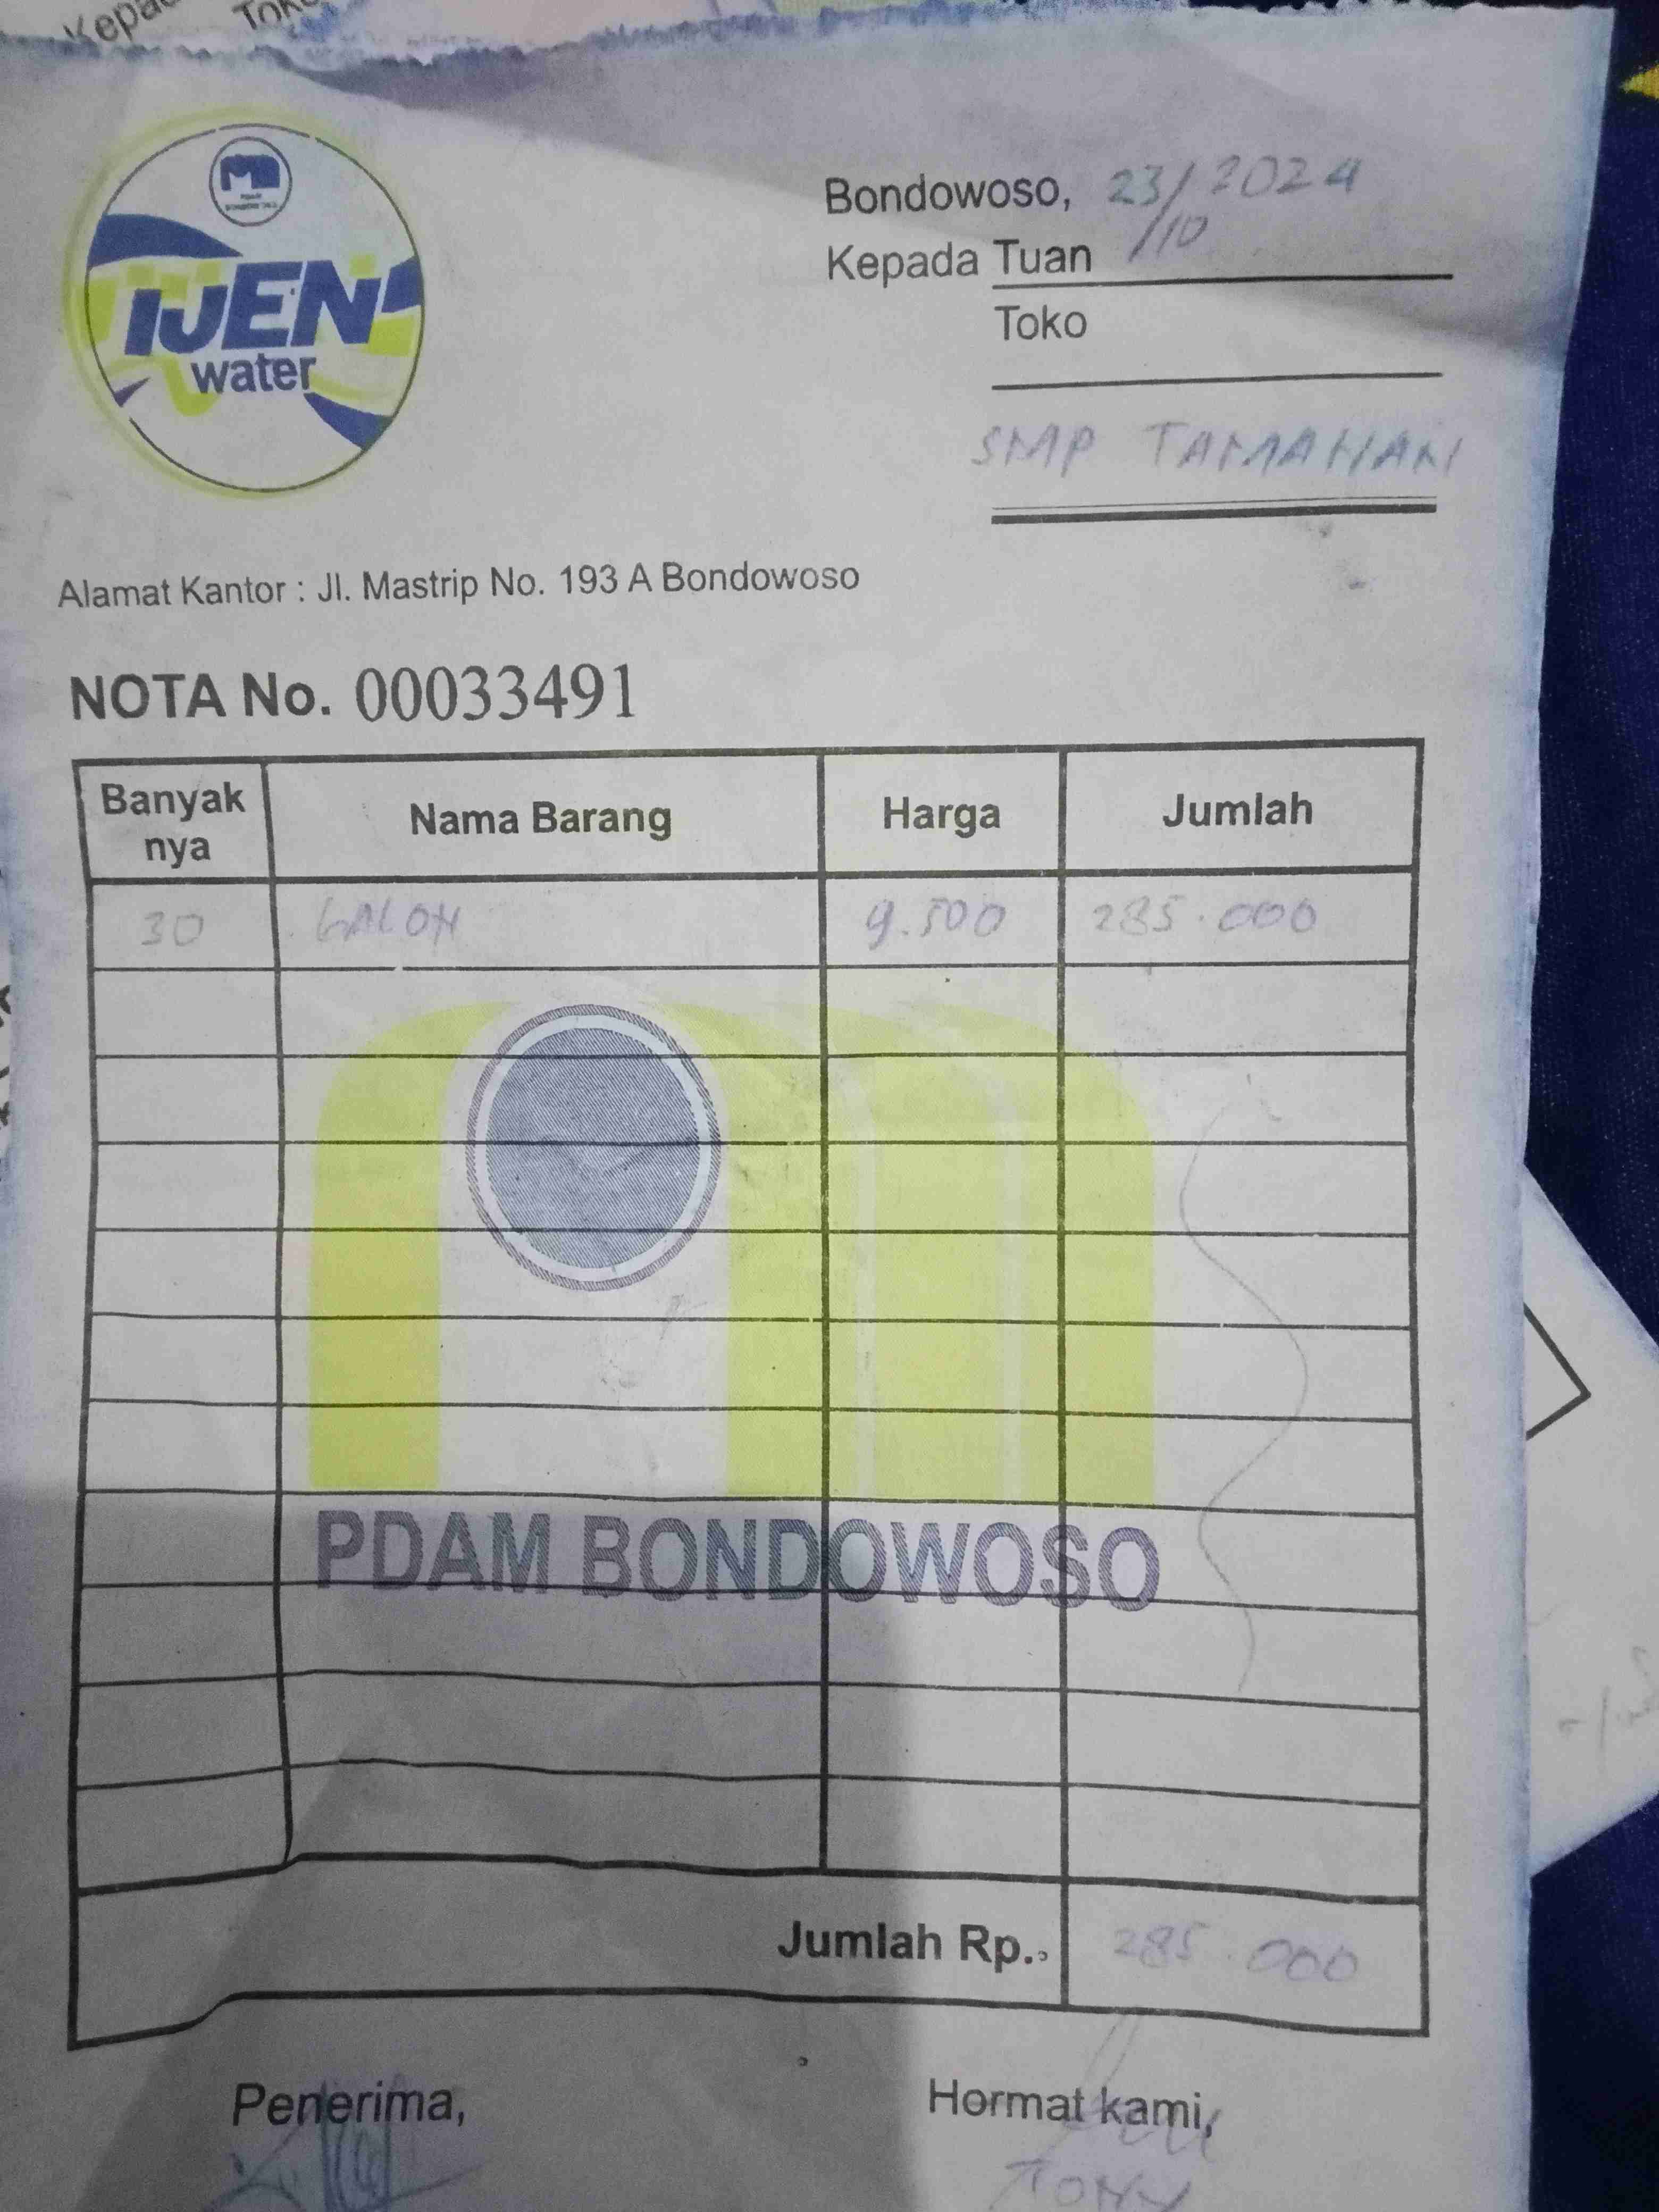 Kepa
Toko
IJEN
water
Bondowoso, 23/10 2024
Kepada Tuan
Toko
SMP TAMANAN
Alamat Kantor : Jl. Mastrip No. 193 A Bondowoso
NOTA No. 00033491
Banyak nya Nama Barang Harga Jumlah
30 GALON 9.500 285.000
PDAM BONDOWOSO
Jumlah Rp. 285.000
Penerima, Hormat kami,
TONY